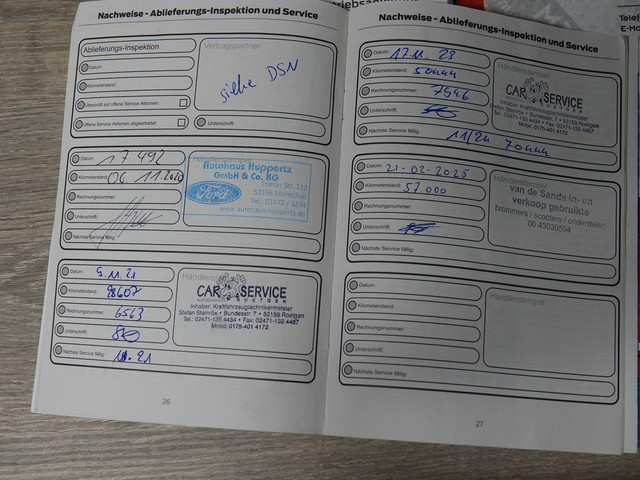 Nachweise - Ablieferungs-Inspektion und Service
Ablieferungs-Inspektion
Datum:
Kilometerstand:
Überprüft auf offene Service Aktionen:
Offene Service Aktionen abgearbeitet:
Vertragspartner
siehe DSN
Unterschrift:
Datum: 17 492
Kilometerstand: 06 11.2020
Rechnungsnummer:
Unterschrift:
Nächste Service fällig:
Autohaus Huppertz
GmbH & Co. KG
Ford
Trierer Str. 112
52156 Monschau
Tel.: 02472 / 3274
www.autohaus-huppertz.de
Datum: 9.11.21
Kilometerstand: 28607
Rechnungsnummer: 6563
Unterschrift:
Nächste Service fällig:
Händlerstempel
CAR SERVICE
ROETGEN
Inhaber: Kraftfahrzeugtechnikermeister
Stefan Steinröx • Bundesstr. 7 • 52159 Roetgen
Tel.: 02471-135 4434 • Fax: 02471-135 4467
Mobil: 0175-401 4172
26
Nachweise - Ablieferungs-Inspektion und Service
Datum: 17.11.23
Kilometerstand:
Rechnungsnummer: 7546
Unterschrift:
Nächste Service fällig: 11/24
Händlerstempel
CAR SERVICE
ROETGEN
Datum: 21-02-2025
Kilometerstand: 57.000
Rechnungsnummer:
Unterschrift:
Nächste Service fällig:
Händlerstempel
van de Sande in- en
verkoop gebruikte
brommers / scooters / onderdelen
06 43030594
Datum:
Kilometerstand:
Rechnungsnummer:
Unterschrift:
Nächste Service fällig:
Händlerstempel
27